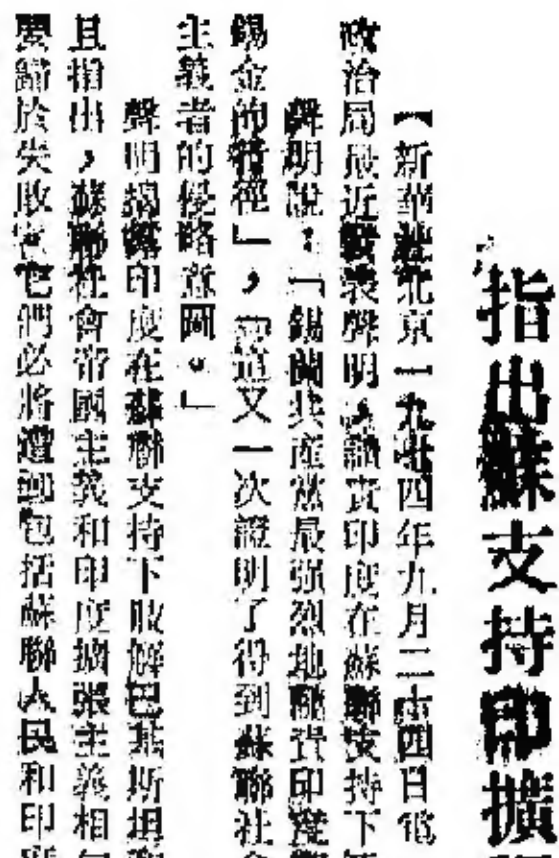 指出蘇支持印擴
【新華社北京一九七四年九月二十四日電
政治局最近發表聲明，譴責印度在蘇聯支持下
聲明說：「錫蘭共產黨最强烈地譴責印度
錫金的行徑」，「這又一次證明了得到蘇聯社
主義者的侵略意圖。」
聲明揭露印度在蘇聯支持下肢解巴基斯坦
且指出，蘇聯社會帝國主義和印度擴張主義相
要歸於失敗，它們必將遭到包括蘇聯人民和印